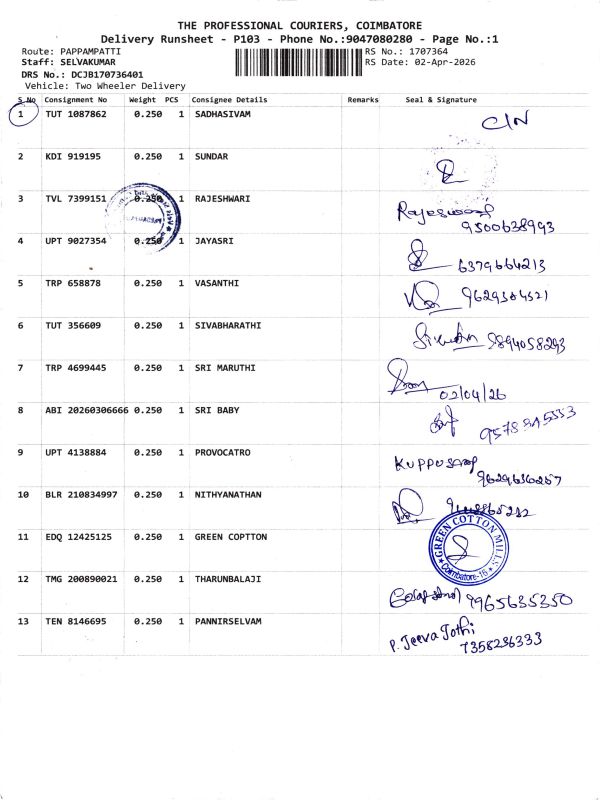 THE PROFESSIONAL COURIERS, COIMBATORE
Delivery Runsheet - P103 - Phone No.:9047080280 - Page No.:1
Route: PAPPAMPATTI RS No.: 1707364
Staff: SELVAKUMAR RS Date: 02-Apr-2026
DRS No.: DCJB170736401
Vehicle: Two Wheeler Delivery
S No Consignment No Weight PCS Consignee Details Remarks Seal & Signature
1 TUT 1087862 0.250 1 SADHASIVAM C/N
2 KDI 919195 0.250 1 SUNDAR
3 TVL 7399151 0.250 1 RAJESHWARI
9500638993
4 UPT 9027354 0.250 1 JAYASRI
6379664213
5 TRP 658878 0.250 1 VASANTHI
6 TUT 356609 0.250 1 SIVABHARATHI
7 TRP 4699445 0.250 1 SRI MARUTHI
02/04/26
8 ABI 20260306666 0.250 1 SRI BABY
9 UPT 4138884 0.250 1 PROVOCATRO
10 BLR 210834997 0.250 1 NITHYANATHAN
11 EDQ 12425125 0.250 1 GREEN COPTTON
GREEN COTTON MILLS
Coimbatore-16
12 TMG 200890021 0.250 1 THARUNBALAJI
9965635350
13 TEN 8146695 0.250 1 PANNIRSELVAM
P. Jeeva Jothi
7358236333